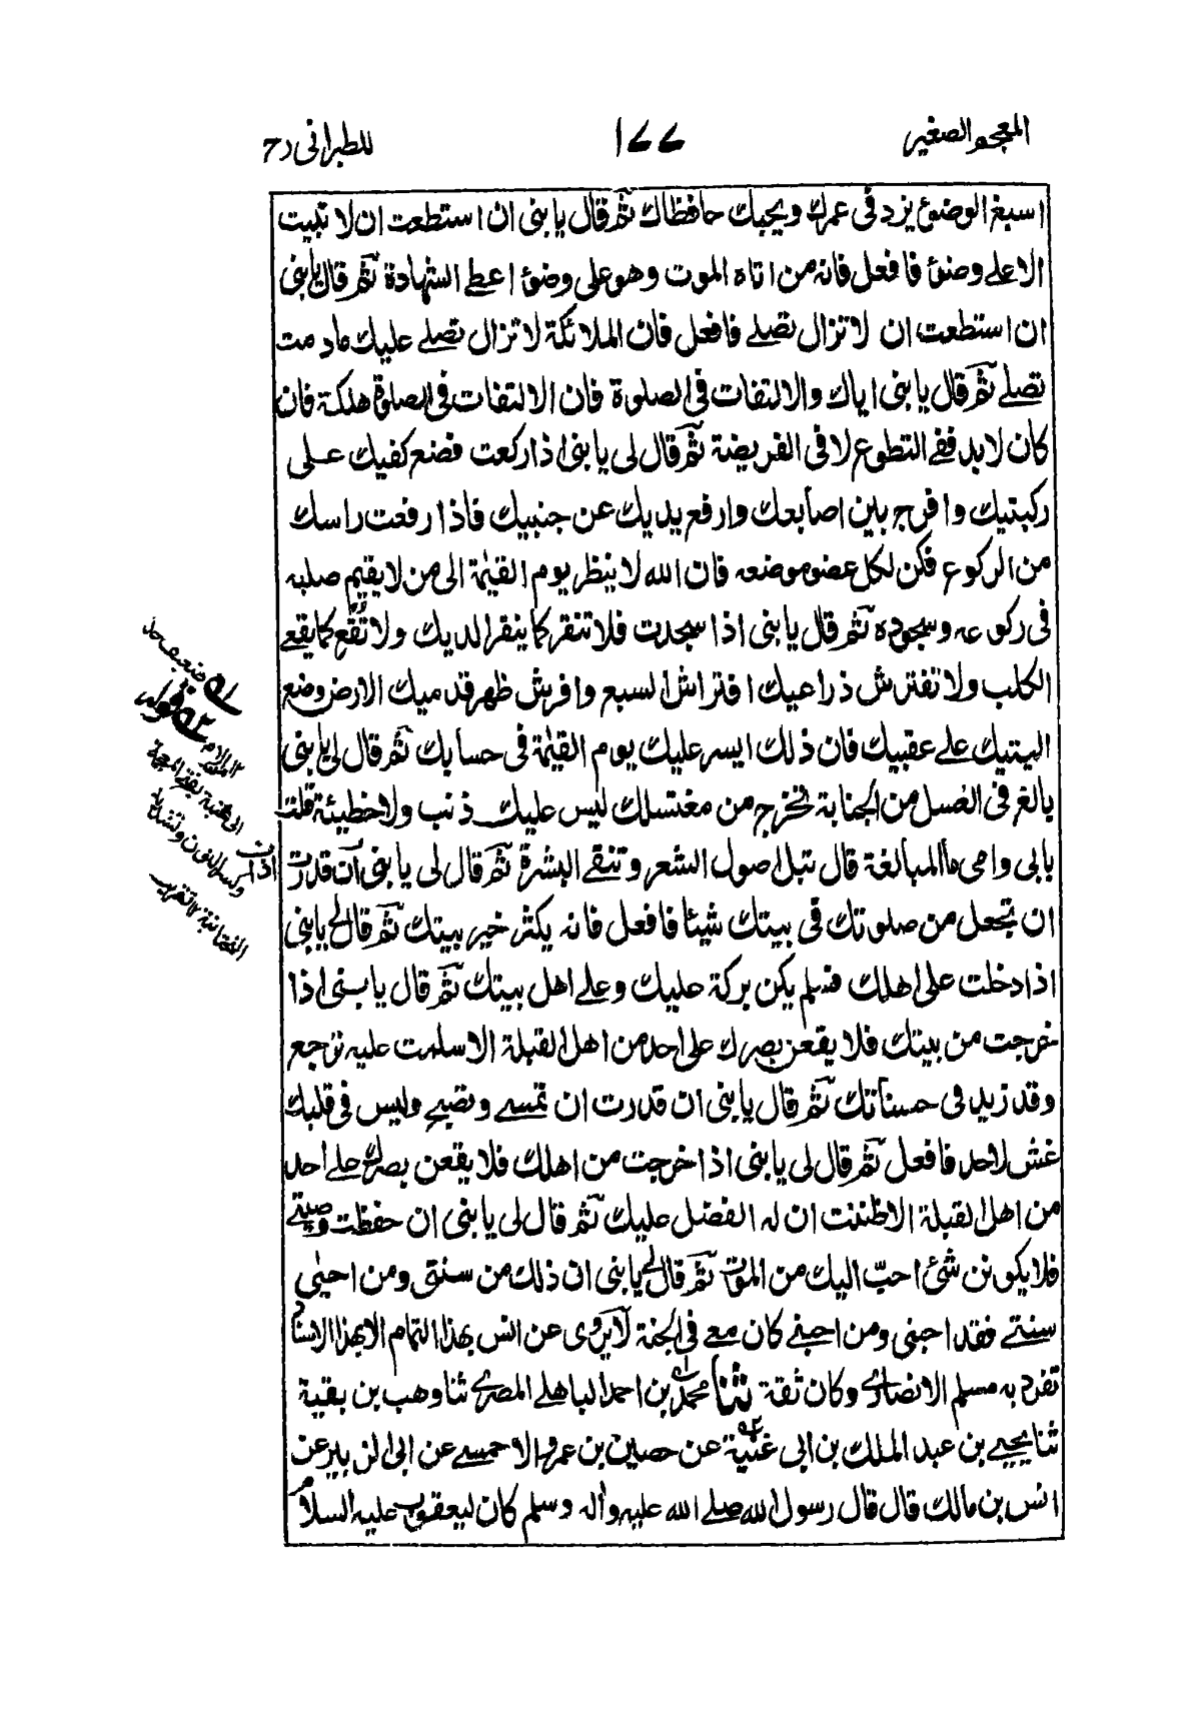 المعجم الصغير
١٧٧
للطبرانى رح
اسبغ الوضوء يزد فى عمرك ويحبك حافظاك ثم قال يا بنى ان استطعت ان لا تبيت
الا على وضوء فافعل فانه من اتاه الموت وهو على وضوء اعطى الشهادة ثم قال يا بنى
ان استطعت ان لا تزال تصلے فافعل فان الملائكة لا تزال تصلے عليك مادمت
تصلے ثم قال يا بنى اياك والالتفات فى الصلوة فان الالتفات فى الصلوة هلكة فان
كان لا بد ففے التطوع لا فى الفريضة ثم قال لى يا بنى اذا ركعت فضع كفيك على
ركبتيك وافرج بين اصابعك وارفع يديك عن جنبيك فاذا رفعت راسك
من الركوع فكن لكل عضو موضعه فان الله لا ينظر يوم القيمة الى من لا يقيم صلبه
فى ركوعه وسجوده ثم قال يا بنى اذا سجدت فلا تنقر كما ينقر الديك ولا تقع كما يقعے
الكلب ولا تفترش ذراعيك افتراش السبع وافرش ظهر قدميك الارض وضع
اليتيك علے عقبيك فان ذلك ايسر عليك يوم القيمة فى حسابك ثم قال لى يا بنى
بالغ فى الغسل من الجنابة تخرج من مغتسلك ليس عليك ذنب ولا خطيئة قلت
بابى وامى ما المبالغة قال تبل اصول الشعر وتنقے البشرة ثم قال لى يا بنى ان قدرت
ان تجعل من صلوتك فى بيتك شيئا فافعل فانه يكثر خير بيتك ثم قال لى يا بنى
اذا دخلت على اهلك فسلم يكن بركة عليك وعلے اهل بيتك ثم قال يا بنى اذا
خرجت من بيتك فلا يقعن بصرك على احد من اهل القبلة الا سلمت عليه ترجع
وقد زيد فى حسناتك ثم قال يا بنى ان قدرت ان تمسے وتصبح وليس فى قلبك
غش لاحد فافعل ثم قال لى يا بنى اذا خرجت من اهلك فلا يقعن بصرك علے احد
من اهل القبلة الا ظننت ان له الفضل عليك ثم قال لى يا بنى ان حفظت وصيتے
فلا يكونن شئ احبّ اليك من الموت ثم قال لى يا بنى ان ذلك من سنتى ومن احيٰى
سنتے فقد احبنى ومن احبنے كان معے فى الجنة لا يروى عن انس بهذا التمام الا بهذا الاسناد
تفرد به مسلم الانصارى وكان ثقة ثنا محمد بن احمد الباهلے المصرے ثنا وهب بن بقية
ثنا يحيے بن عبد الملك بن ابى غنية عن حصين بن عمرو الاحمسے عن ابى الزبير عن
انس بن مالك قال قال رسول الله صلے الله عليه وأله وسلم كان ليعقوب عليه السلام
له ضعيف
له قوله